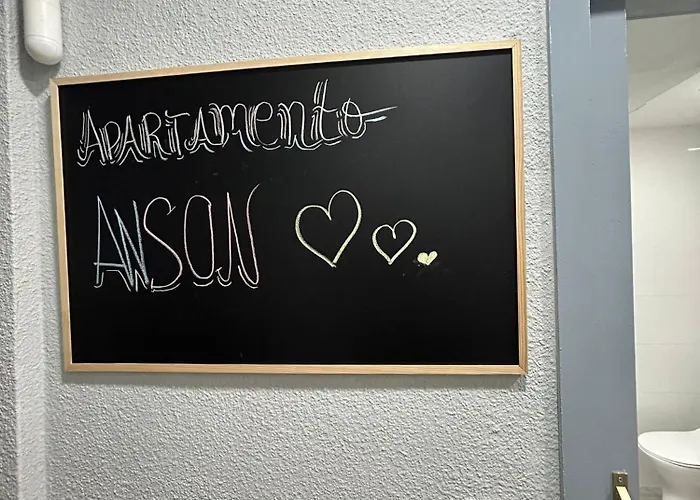 APARTAMENTO
ANSON